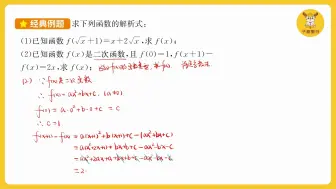 经典例题 求下列函数的解析式:
(1)已知函数 f(√x+1)=x+2√x,求 f(x);
(2)已知函数 f(x)是二次函数,且 f(0)=1,f(x+1)-
f(x)=2x,求 f(x);
(2) ∵ f(x)是二次函数
∴ f(x)=ax²+bx+c (a≠0)
f(0)= a·0²+b·0+c = c
∴ c=1
f(x+1)-f(x)= a(x+1)²+b(x+1)+c-(ax²+bx+c)
= a(x²+2x+1)+bx+b+c-ax²-bx-c
= ax²+2ax+a+bx+b+c-ax²-bx-c
= 2